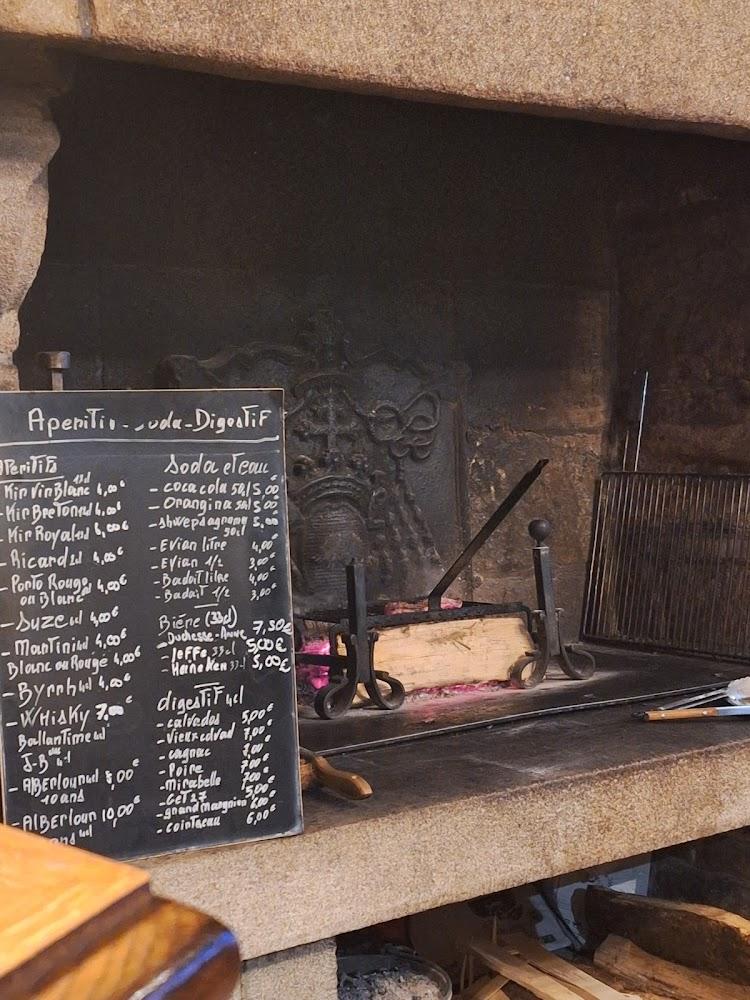 Aperitif - Soda - Digestif
Aperitifs
- Kir Vin Blanc 4,00€
- Kir Breton 4,00€
- Kir Royal 6,00€
- Ricard 2cl 4,00€
- Porto Rouge
ou Blanc 4,00€
- Suze 4,00€
- Martini 4,00€
Blanc ou Rougé 4,00€
- Byrrh 4cl 4,00€
- Whisky 7,00
Ballantime
J-B 4cl
- Alberloun 8,00€
10 ans
- Alberloun 10,00€
ans 4cl
Soda et eau
- coca cola 5,00
- Orangina 5,00€
- shwepdagrum 5,00€
- Evian litre 4,00€
- Evian 1/2 3,00€
- Badoit litre 4,00€
- Badoit 1/2 3,00€
Bière (33cl)
- Duchesse-Anne 7,50€
- Jeffe 33cl 5,00€
- Haineken 33cl 5,00€
digestif 4cl
- calvados 5,00€
- Vieux calvad 7,00€
- cognac
- Poire 7,00€
- Mirabelle 7,00€
- Get 27 5,00€
- grand margnion 6,00€
- cointeau 6,00€